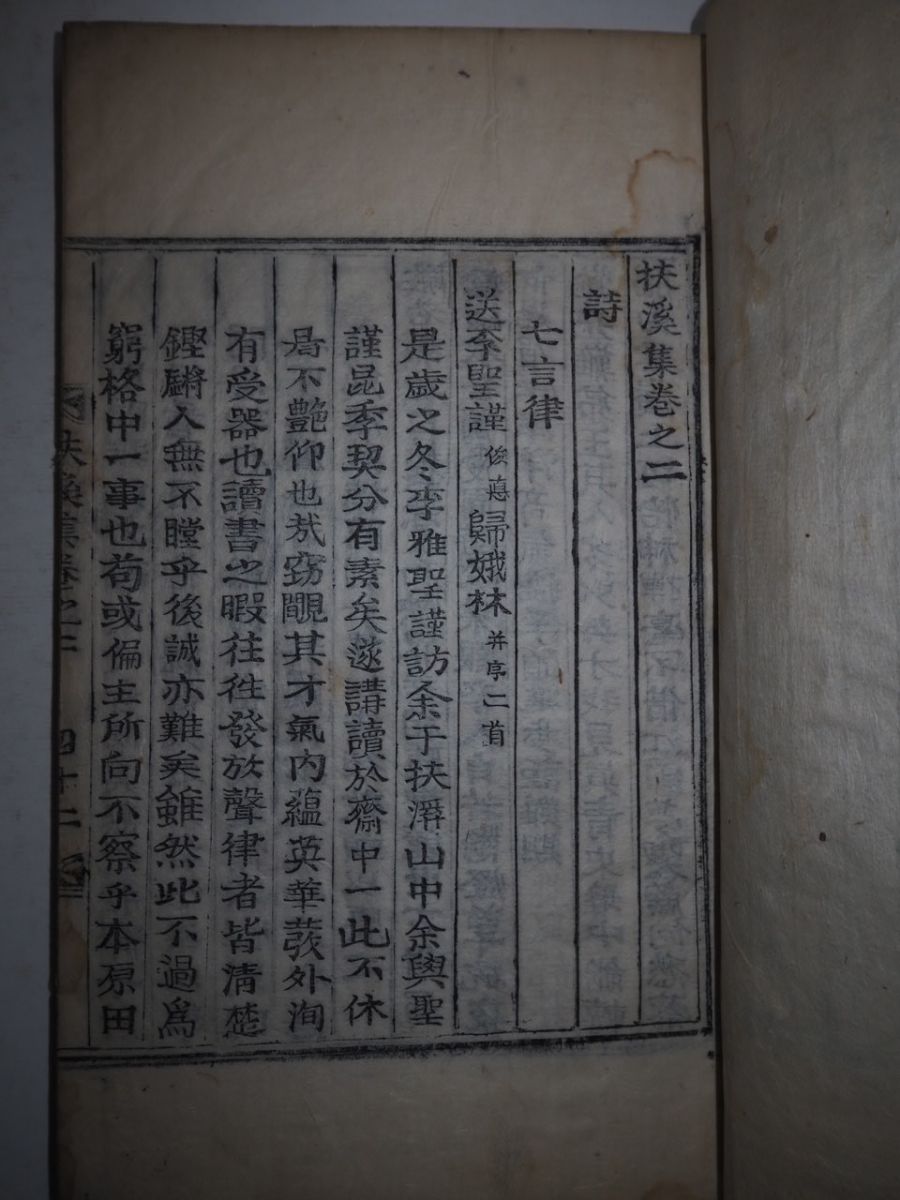 扶溪集卷之二
詩
七言律
送李聖謹俊惪歸娥林并序二首
是歲之冬李雅聖謹訪余于扶溪山中余與聖
謹昆季契分有素矣遂講讀於齋中一此不休
局不艶仰也哉窃覸其才氣內蘊英華發外洵
有受器也讀書之暇往往發放聲律者皆清楚
鏗鏘人無不瞠乎後誠亦難矣雖然此不過爲
窮格中一事也苟或偏主所向不察乎本原田
扶溪集卷之二 四十二